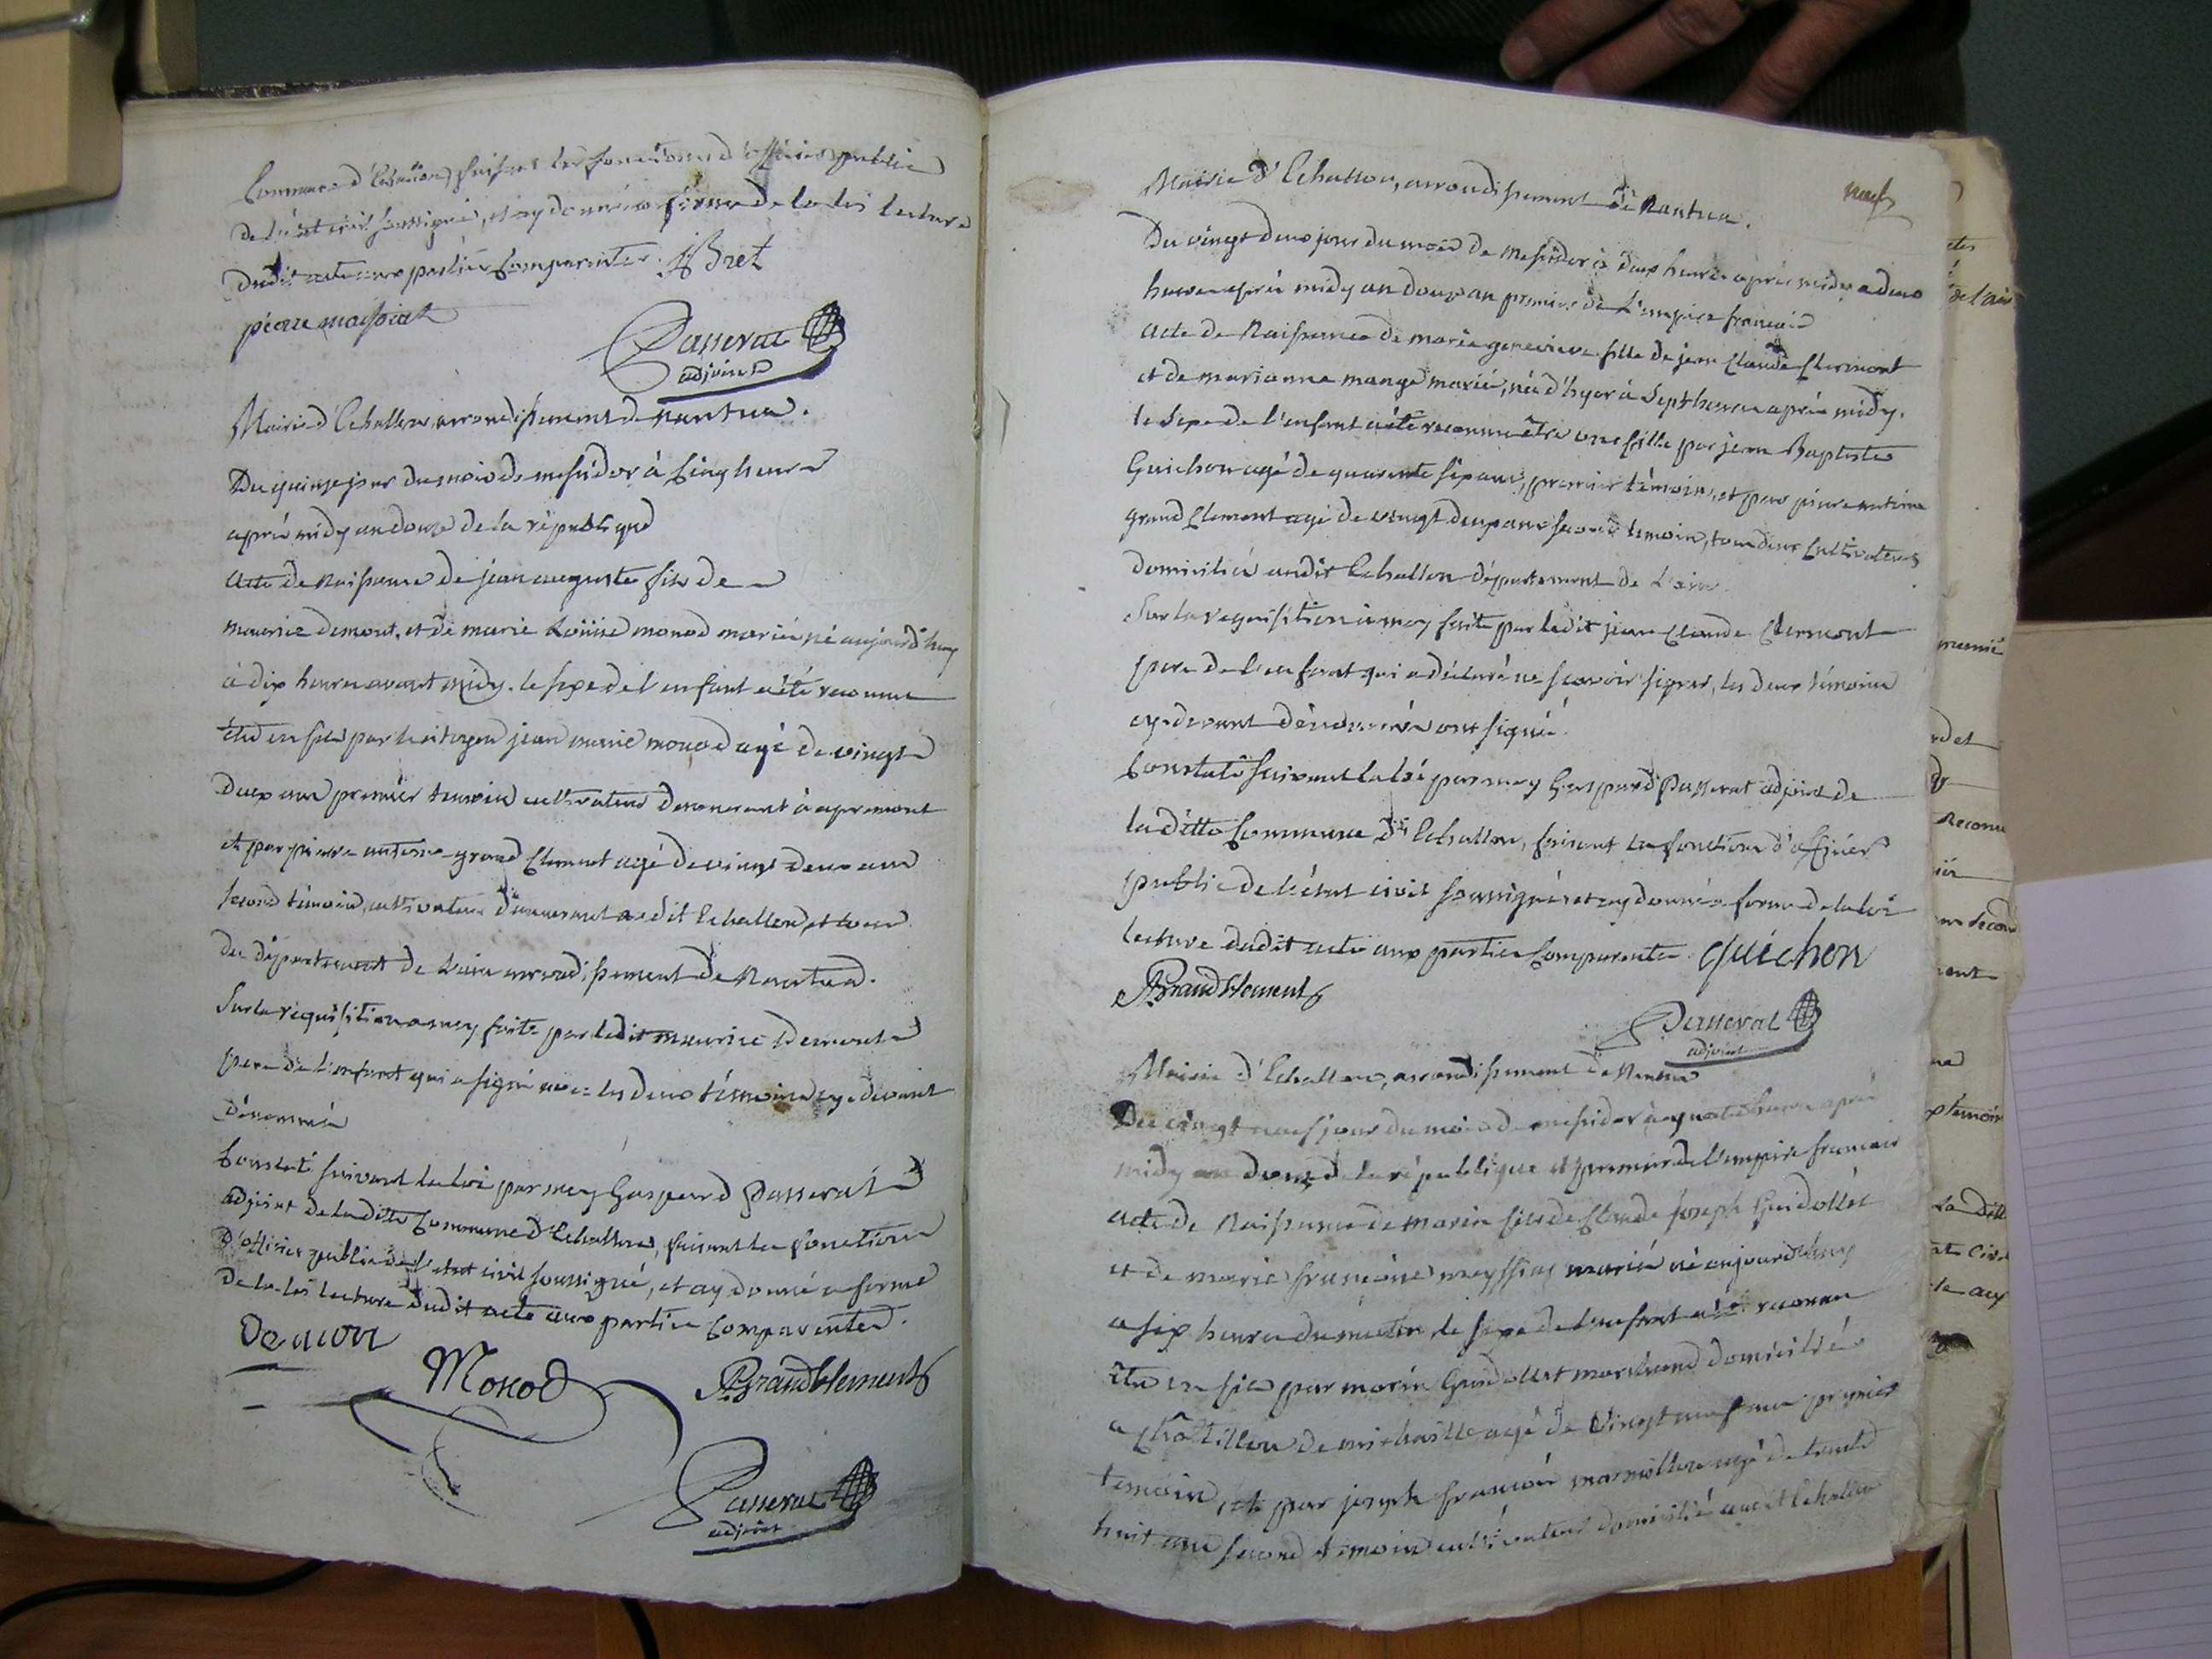 Commune d'Echallon, faisant les fonctions d'officier public
de l'état civil soussigné, et ay donné a forme de la loi lecture
dudit acte aux parties comparentes. Bret
pierre massiat
Passerat
adjoint
Mairie d'Echallon arrondissement de nantua.
Du quinze jour du mois de messidor à cinq heures
après midy an douze de la république
acte de naissance de jean auguste fils de
maurice demont, et de marie Loüise monod mariés, né aujourd'huy
à dix heures avant midy. le sexe de l'enfant a été reconnu
être un fils par le citoyen jean marie monod agé de vingt
deux ans premier temoin cultivateur demeurant à apremont
et par pierre antoine grand Clement agé de vingt deux ans
second témoin, cultivateur demeurant audit Echallon, et tous
du département de L'ain arrondissement de Nantua.
Sur la réquisition a moy faite par ledit maurice Demont
pere de l'enfant qui a signé avec les deux témoins cy devant
dénommés
Constaté suivant la loi par moy Gaspard Passerat
adjoint de la ditte Commune d'Echallon, faisant les fonctions
d'officier public de l'état civil soussigné, et ay donné a forme
de la loi lecture dudit acte aux parties comparentes.
Monod
Grandclement
Passerat
adjoint
neuf
Mairie d'Echallon, arrondissement de Nantua.
Du vingt deux jour du mois de messidor à deux heures après midy a deux
heures après midy an douze an premier de L'empire français
acte de Naissance de marie genevieve fille de jean Claude Clermont
et de marianne mange mariés, née d'hyer à sept heures après midy.
le sexe de l'enfant a été reconnu être une fille par jean Baptiste
Guichon agé de quarante six ans, premier témoin, et par pierre antoine
grand Clement agé de vingt deux ans second temoin, tous deux cultivateurs
domiciliés audit Echallon département de L'ain
Sur la requisition à moy faite par ledit jean Claude Clermont
pere de l'enfant qui a déclaré ne scavoir signer, les deux témoins
cy devant dénommés ont signé.
Constaté suivant la loi par moy Gaspard Passerat adjoint de
la ditte Commune d'Echallon, faisant les fonctions d'officier
public de l'état civil soussigné et ay donné a forme de la loi
lecture dudit acte aux parties comparentes. Guichon
Grandclement
Passerat
adjoint
Mairie d'Echallon, arrondissement de Nantua
Du vingt neuf jour du mois de messidor à quatre heures après
midy an douze de la république et premier de l'empire français
acte de Naissance de marin fils de Claude joseph Guidollet
et de marie françoise mariés né aujourd'huy
a six heures du matin, le sexe de l'enfant a été reconnu
être un fils par marin Guidollet marchand domicilié
a Châtillon de michaille agé de vingt neuf ans premier
temoin, et par joseph françois marmillon agé de trente
huit ans second temoin cultivateur domicilié audit Echallon